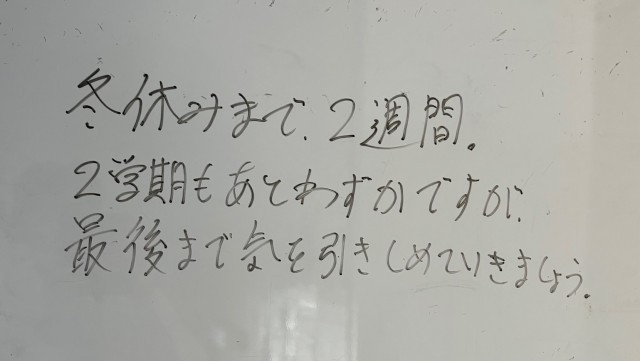 冬休みまで、2週間。
2学期もあとわずかですが、
最後まで気を引きしめていきましょう。